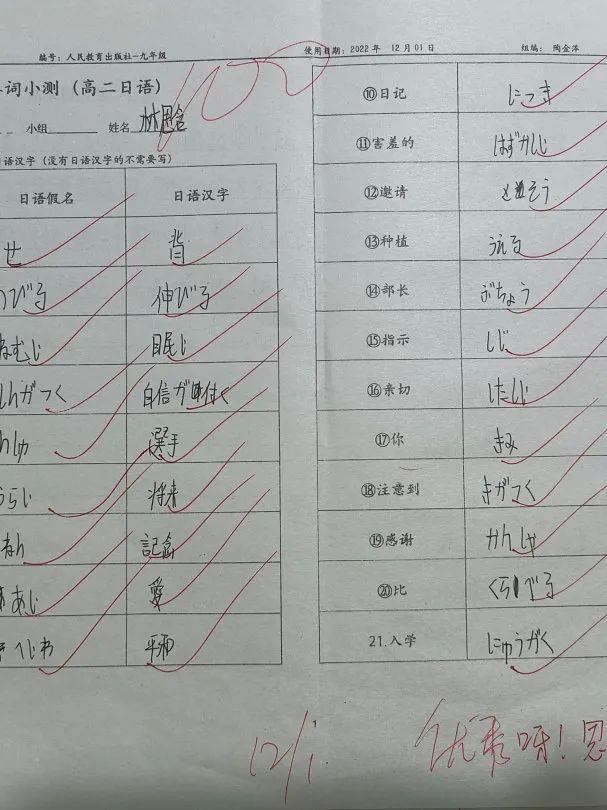 编号：人民教育出版社-九年级
使用日期：2022年 12月01日
组编：陶金萍
词小测（高二日语）
100
小组 姓名
语汉字（没有日语汉字的不需要写）
日语假名 日语汉字
せ 背
びる 伸びる
伸びる
ねむじ 眠じ
しんがつく 自信が付く
んしゅ 選手
うらじ 将来
ねん 記念
あじ 愛
へじわ 平和
⑩日记 にっき
⑪害羞的 はずかしじ
⑫邀请 そう
⑬种植 うえる
⑭部长 ぶちょう
⑮指示 しじ
⑯亲切 したしじ
⑰你 きみ
⑱注意到 きがつく
⑲感谢 かんしゃ
⑳比 くらべる
21.入学 にゅうがく
1
12/1
优秀呀！